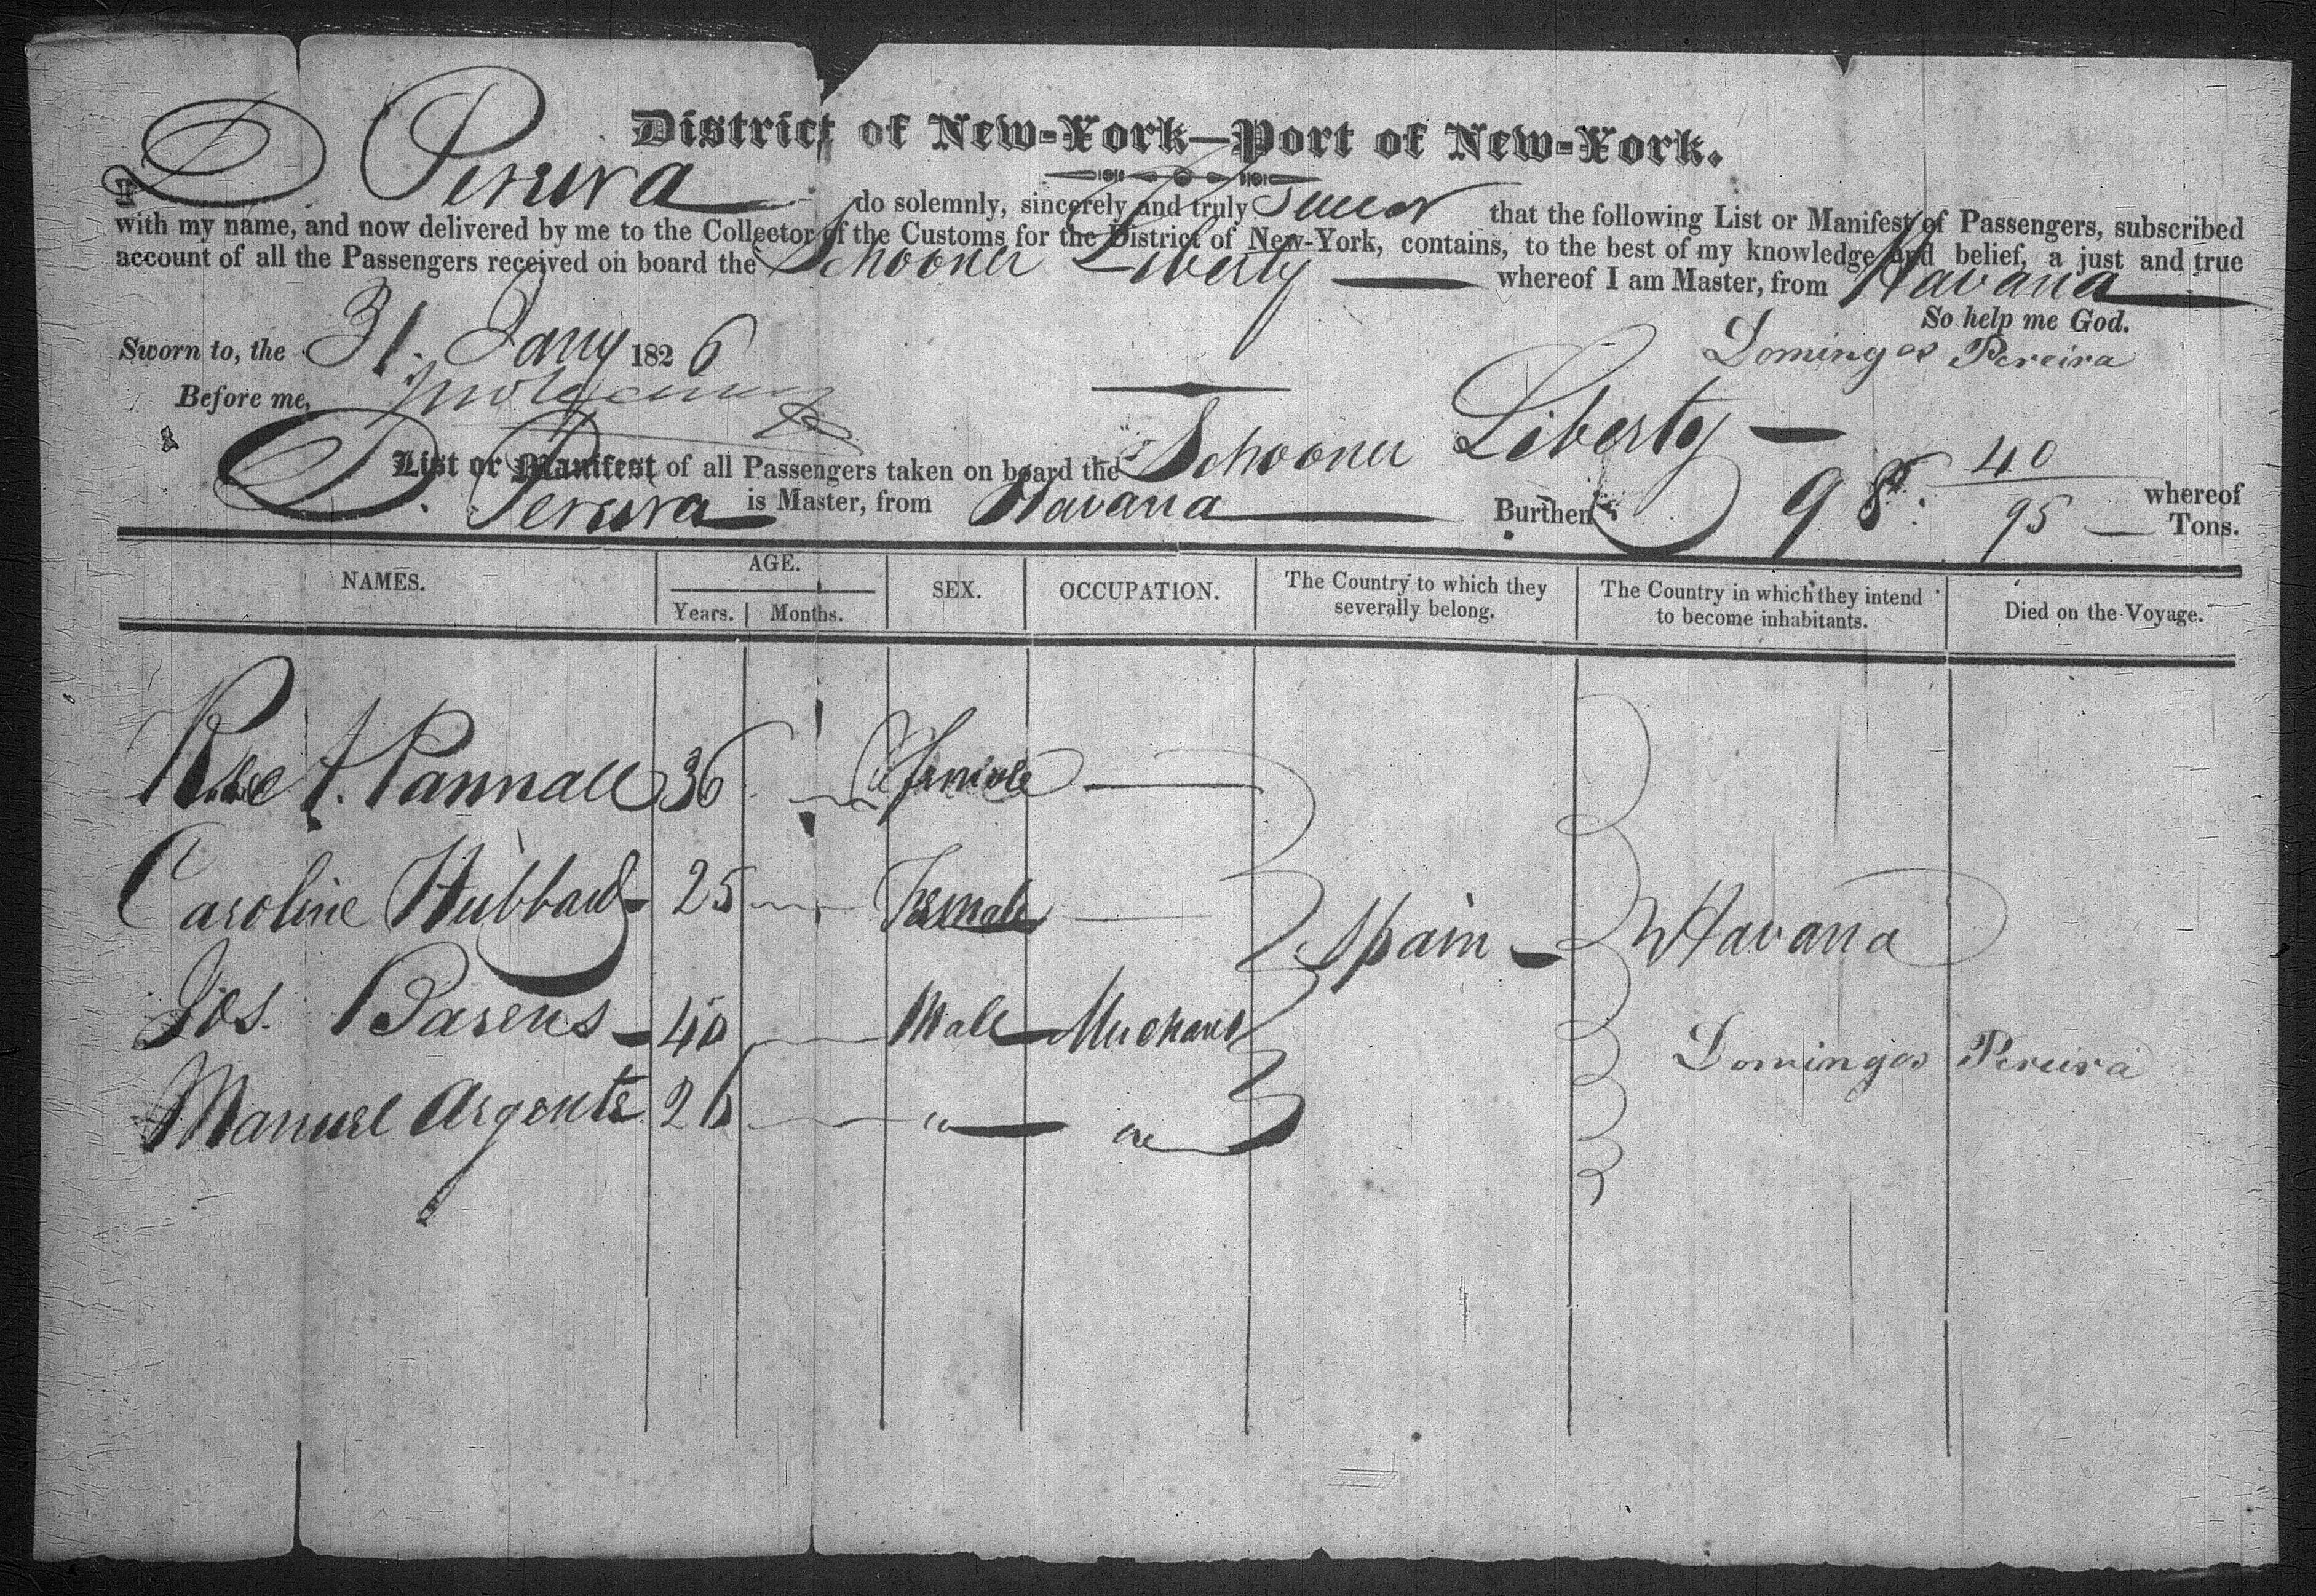 District of New-York—Port of New-York.
I D Pereira do solemnly, sincerely and truly Swear that the following List or Manifest of Passengers, subscribed
with my name, and now delivered by me to the Collector of the Customs for the District of New-York, contains, to the best of my knowledge and belief, a just and true
account of all the Passengers received on board the Schooner Liberty whereof I am Master, from Havana
So help me God.
Sworn to, the 31 Jany 1826 Domingos Pereira
Before me,
List or Manifest of all Passengers taken on board the Schooner Liberty whereof
D. Pereira is Master, from Havana Burthen 98 40/95 Tons.
NAMES. AGE. SEX. OCCUPATION. The Country to which they severally belong. The Country in which they intend to become inhabitants. Died on the Voyage.
Years. Months.
A. Pannall 36 Female
Caroline Hubbard 25 Female Spain Havana
Jos. Barens 40 Male Merchant
Manuel Argente 26 " "
Domingos Pereira